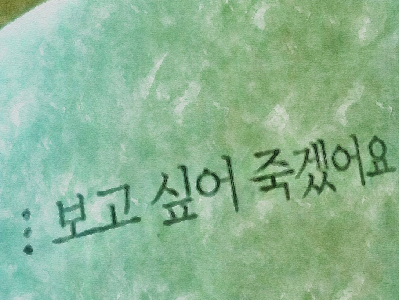 ⋮ 보고 싶어 죽겠어요